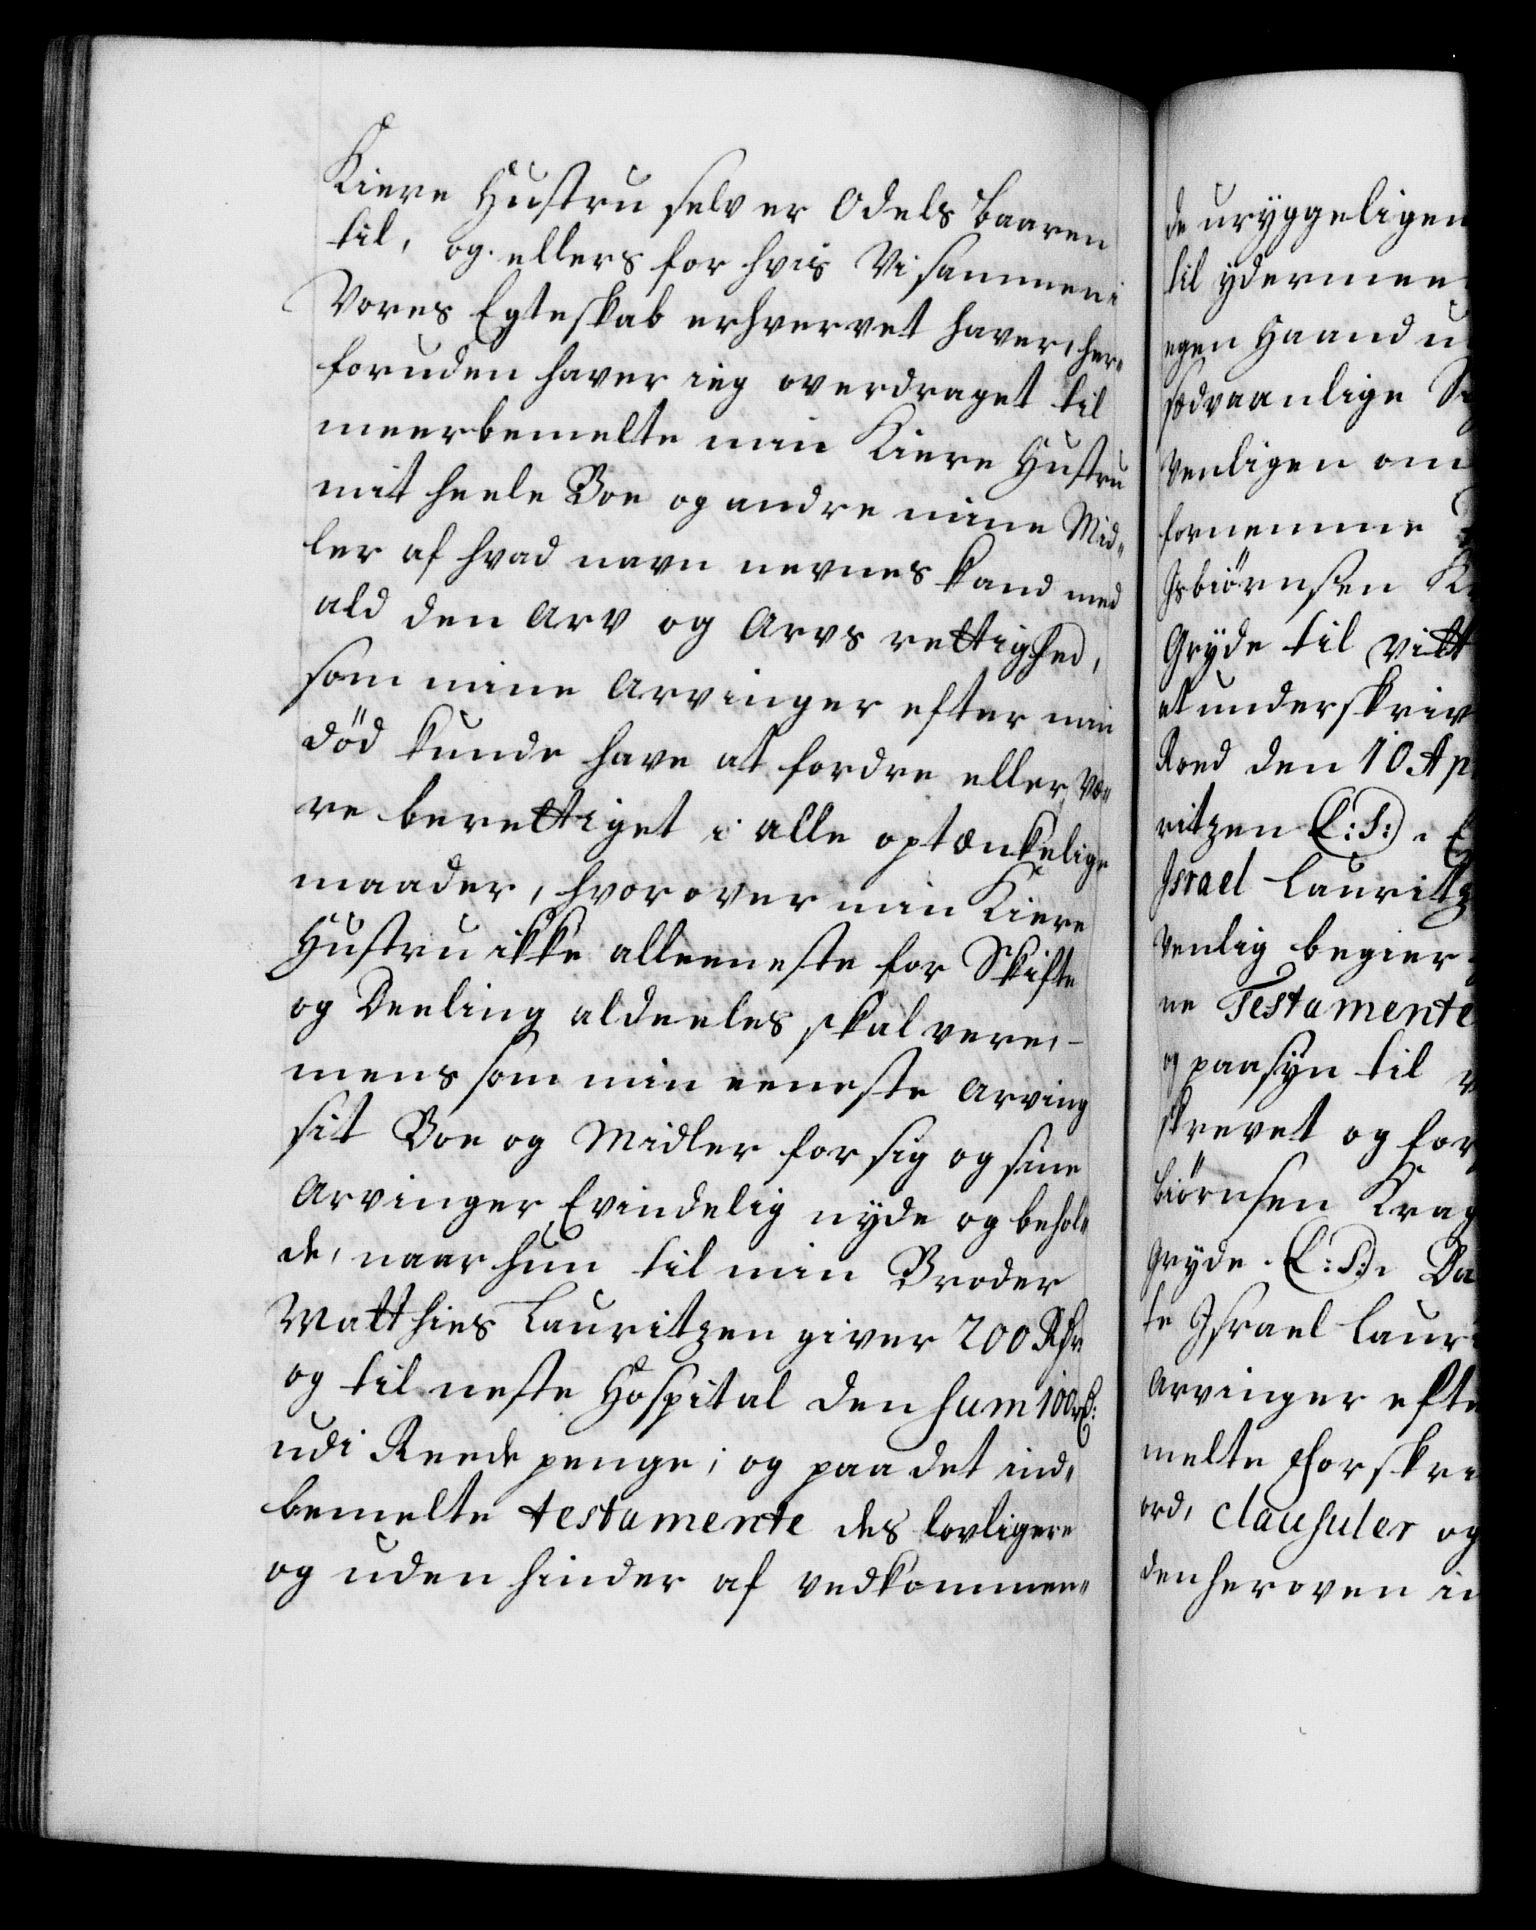 Kiere Hustru selv er Odels baaren
til, og ellers for hvis Vi sammen i
Vores Egteskab erhvervet haver, her-
foruden haver ieg overdraget til
meerbemelte min Kiere Hustru
mit heele Boe og andre mine Mid-
ler af hvad navn nevnes kand med
ald den Arv og Arvs rettighed,
som mine Arvinger efter min
död kunde have at fordre eller væ-
re berettiget i alle optænkelige
maader, hvorover min Kiere
Hustru ikke alleeneste for Skifte
og Deeling aldeeles skal vere,
mens som min eeneste Arving
sit Boe og Midler for sig og sine
Arvinger Evindelig nyde og behol-
de, naar hun til min Broder
Matthies Lauritzen giver 200 Rdr
og til neste Hospital den sum 100 rd:
udi Reede penge; og paa det ind-
bemelte testamente des lovligere
og uden hinder af vedkommen-
de uryggeligen
til ydermee
egen Haand u
sædvaanlige
Venligen om
fornemme
Isbiörnsen
Gryde til vitt
at underskriv
Roed den 10 Ap
ritzen (L:S:).
Israel Lauritz
Venlig begier
ne Testamente
og paasyn til
skrevet og for
biörnsen Krag
Gryde. (L:S:). Da
te Israel Lauri
Arvinger efte
melte Forskre
ord, clausuler og
den heroven in